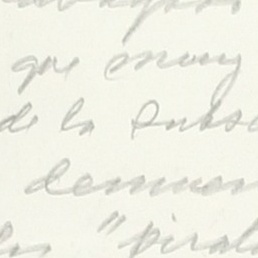 que muy
de la subs
denun
las "pirat